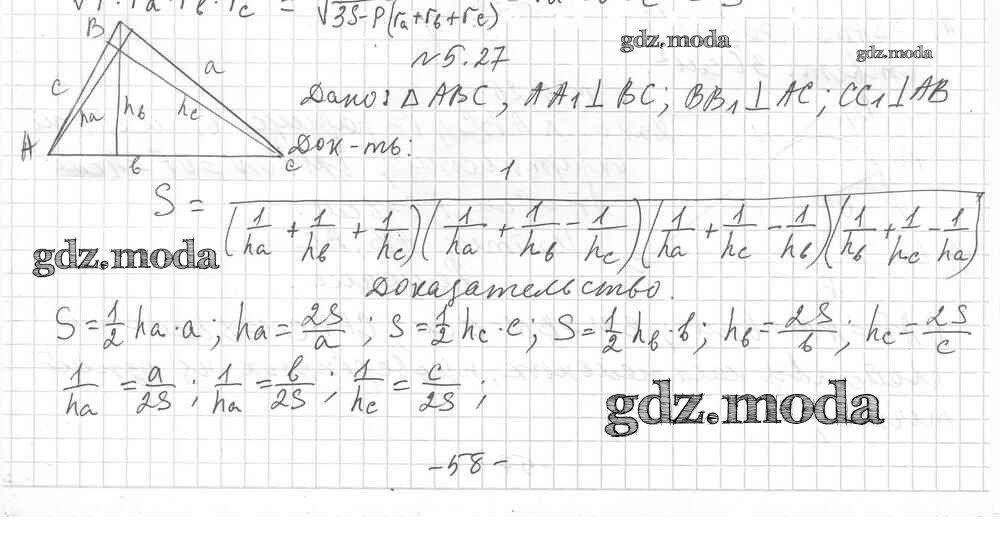 √P · ra · rb · rc = √3S-P(ra+rb+rc)
B
a
c
ha
hb
hc
A
b
c
gdz.moda
gdz.moda
N 5.27
Дано: Δ ABC, AA1 ⊥ BC; BB1 ⊥ AC; CC1 ⊥ AB
Док-ть:
S = 1 / (1/ha + 1/hb + 1/hc)(1/ha + 1/hb - 1/hc)(1/ha + 1/hc - 1/hb)(1/hb + 1/hc - 1/ha)
gdz.moda
Доказательство.
S = 1/2 ha · a; ha = 2S/a; S = 1/2 hc · c; S = 1/2 hb · b; hb = 2S/b; hc = 2S/c
1/ha = a/2S; 1/ha = b/2S; 1/hc = c/2S;
gdz.moda
-58-